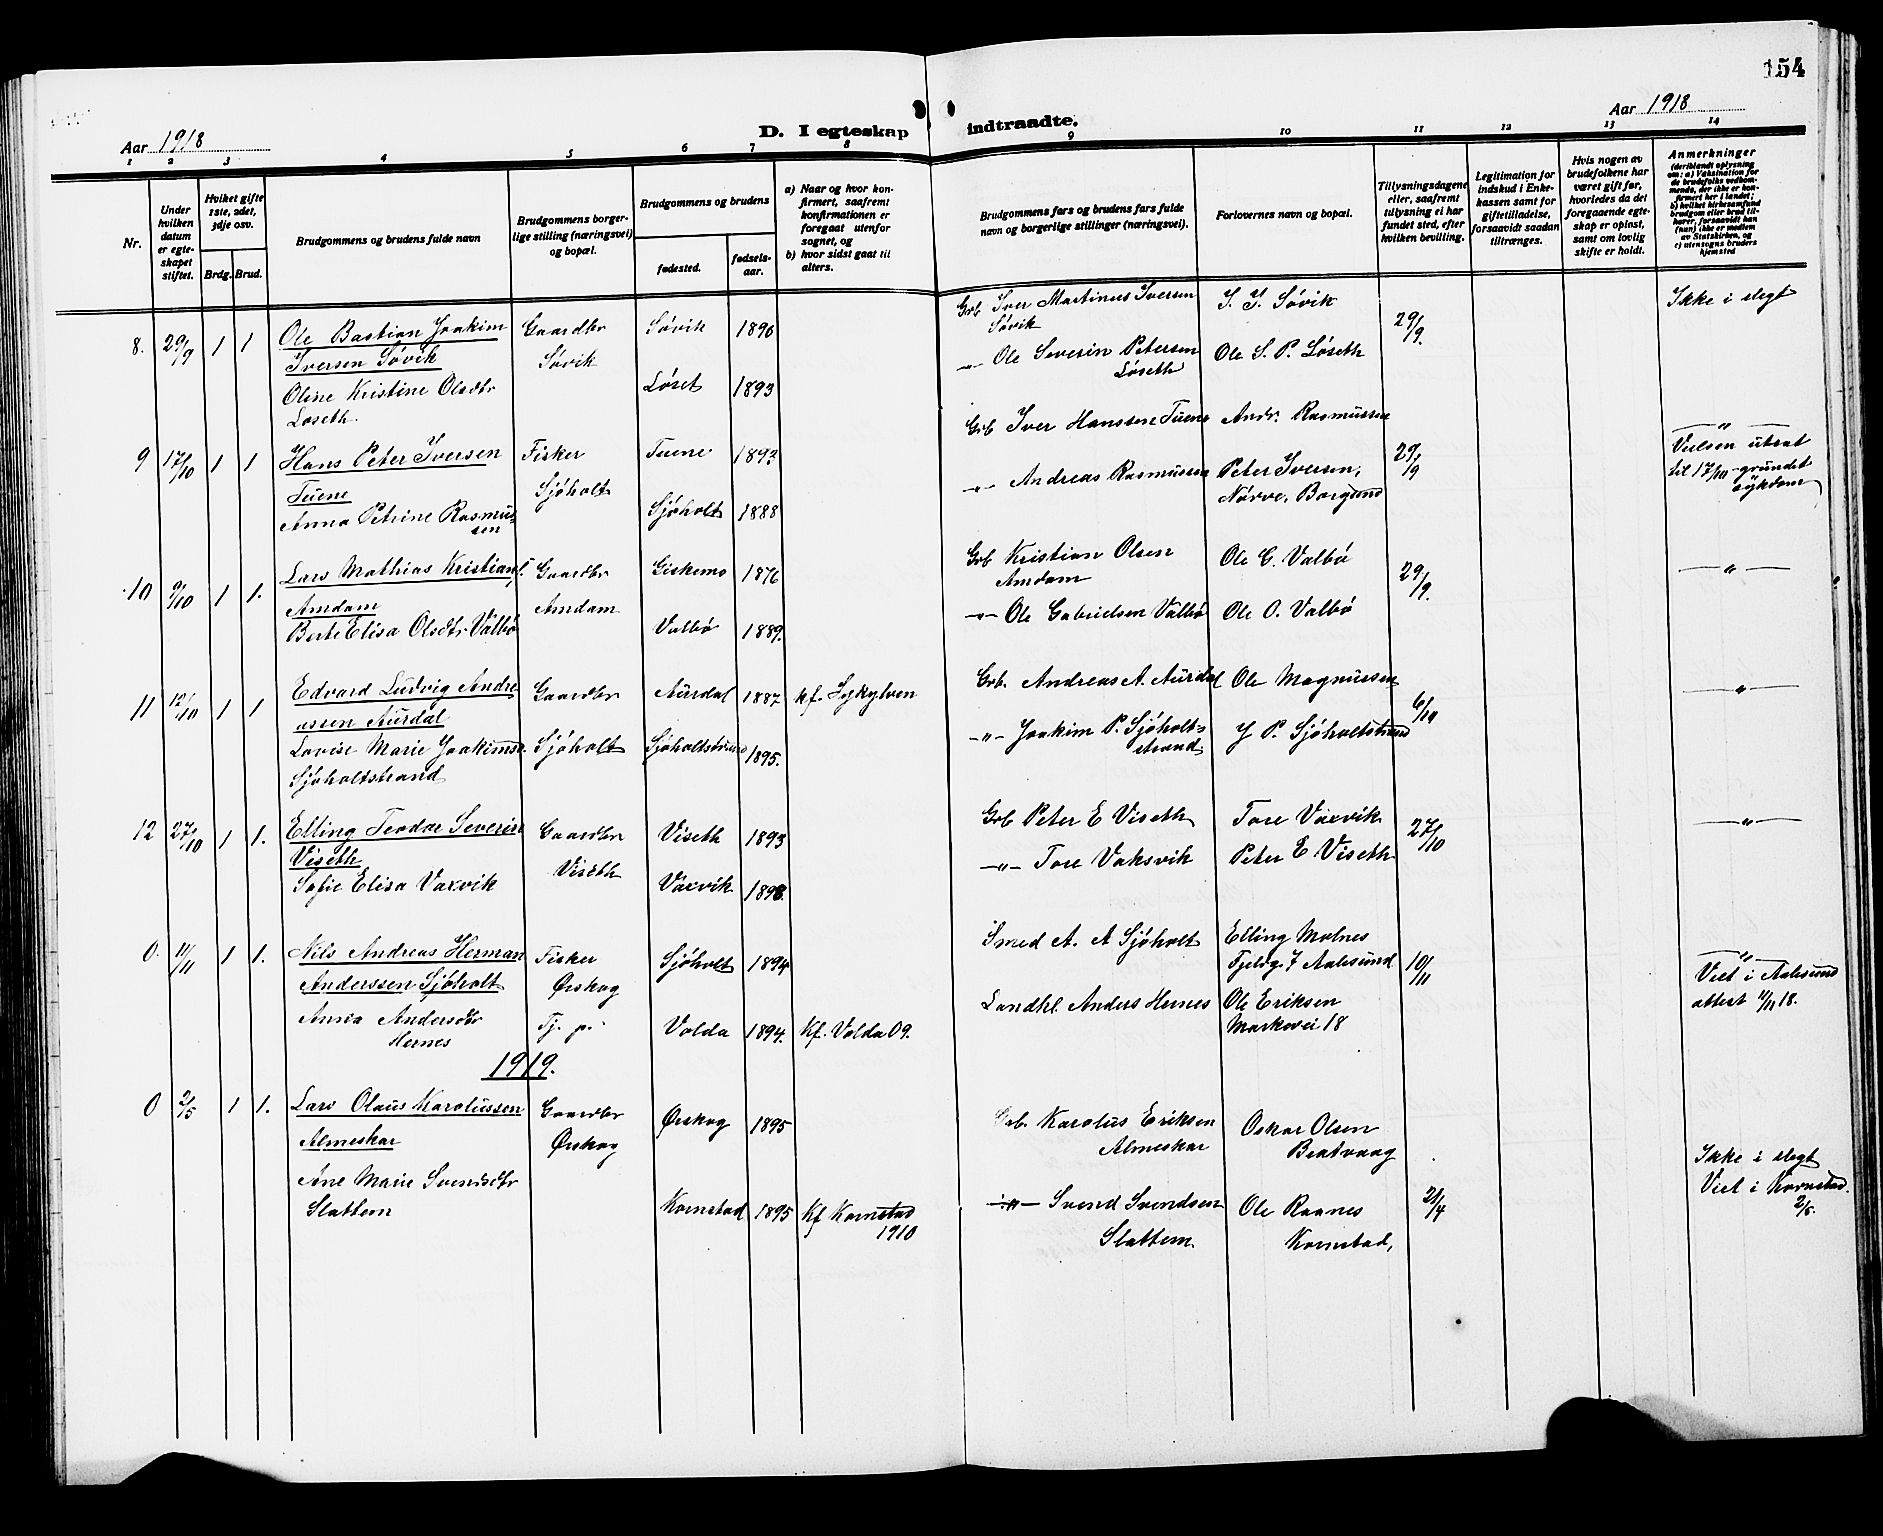 154
Aar 1918
D. I egteskap indtraadte.
Aar 1918
1 2 3 4 5 6 7 8 9 10 11 12 13 14
Nr.
Under hvilken datum er egteskapet stiftet.
Hvilket gifte 1ste, 2det, 3dje osv.
Brdg. Brud.
Brudgommens og brudens fulde navn
Brudgommens borgerlige stilling (næringsvei) og bopæl.
Brudgommens og brudens
fødested.
fødselsaar.
a) Naar og hvor konfirmert, saafremt konfirmationen er foregaat utenfor sognet, og
b) hvor sidst gaat til alters.
Brudgommens fars og brudens fars fulde navn og borgerlige stillinger (næringsvei).
Forlovernes navn og bopæl.
Tillysningsdagene eller, saafremt tillysning ei har fundet sted, efter hvilken bevilling.
Legitimation for indskud i Enkekassen samt for giftetilladelse, forsaavidt saadan tiltrænges.
Hvis nogen av brudefolkene har været gift før, hvorledes da det foregaaende egteskap er opløst, samt om lovlig skifte er holdt.
Anmerkninger
(deriblandt oplysning om: a) Vaksination for de brudefolks vedkommende, der ikke er konfirmert her i landet; b) hvilket kirkesamfund brudgom eller brud tilhører, forsaavidt han (hun) ikke er medlem av Statskirken, og c) utensogns bruders hjemsted
8. 29/9 1 1 Ole Bastian Joakim Gaardbr Søvik 1890 Grb Iver Martinus Iversen S. I. Søvik 29/9. Ikke i slegt
Iversen Søvik Søvik Søvik
Oline Kristine Olsdtr Løset 1893 -"- Ole Severin Petersen Ole S. P. Løseth
Løseth. Løseth
9 17/10 1 1 Hans Peter Iversen Fisker Tuene 1892 Grb Iver Hanssen Tuene Andr. Rasmussen 29/9 -"-
Tuene Sjøholt Vielsen utsat
Anna Petrine Rasmussen Sjøholt 1888 -"- Andreas Rasmussen Peter Iversen, til 17/10 grundet
Nørve, Borgund sykdom
10 9/10 1 1. Lars Mathias Kristians. Gaardbr Giskemo 1876 Grb Kristian Olsen Ole G. Valbø 29/9. -"-
Amdam Amdam Amdam
Berte Elisa Olsdtr Valbø Valbø 1889. -"- Ole Gabrielsen Valbø Ole O. Valbø
11 12/10 1 1 Edvard Ludvig Andreassen Aurdal Gaardbr Aurdal 1887 Kf. Sykylven Grb. Andreas A. Aurdal Ole Magnussen 6/10 -"-
Lovise Marie Joakimsd. Sjøholt Sjøholtstrand 1895. -"- Joakim P. Sjøholtstrand J P. Sjøholtstrand
Sjøholtstrand
12 27/10 1 1. Elling Teodor Severin Gaardbr Viseth 1893 Grb Peter E Viseth Tore Vaxvik 27/10 -"-
Viseth Viseth
Sofie Elisa Vaxvik Vaxvik 1898. -"- Tore Vaksvik Peter E Viseth
0. 11/11 1 1. Nils Andreas Herman Fisker Sjøholt 1894 Smed A. A Sjøholt Elling Molnes 10/11 -"-
Anderssen Sjøholt Ørskog Fjeldg. 7 Aalesund Viet i Aalesund
Anna Andersdtr Tj. pi. Volda 1894. Kf. Volda 09. Landhl. Anders Hernes Ole Eriksen attest 11/11 18.
Hernes Markvei 18
1919.
0 2/5 1 1. Lars Olaus Karolussen Gaardbr Ørskog 1895 Grb. Karolus Eriksen Oskar Olsen
Almeskar Ørskog Almeskar Bratvaag Ikke i slegt
Ane Marie Svendsdtr Viet i Kornstad.
Slattem Kornstad 1895 Kf Kornstad 1910 -"- Svend Svendsen Ole Raanes 21/4 2/5.
Slattem Kornstad,